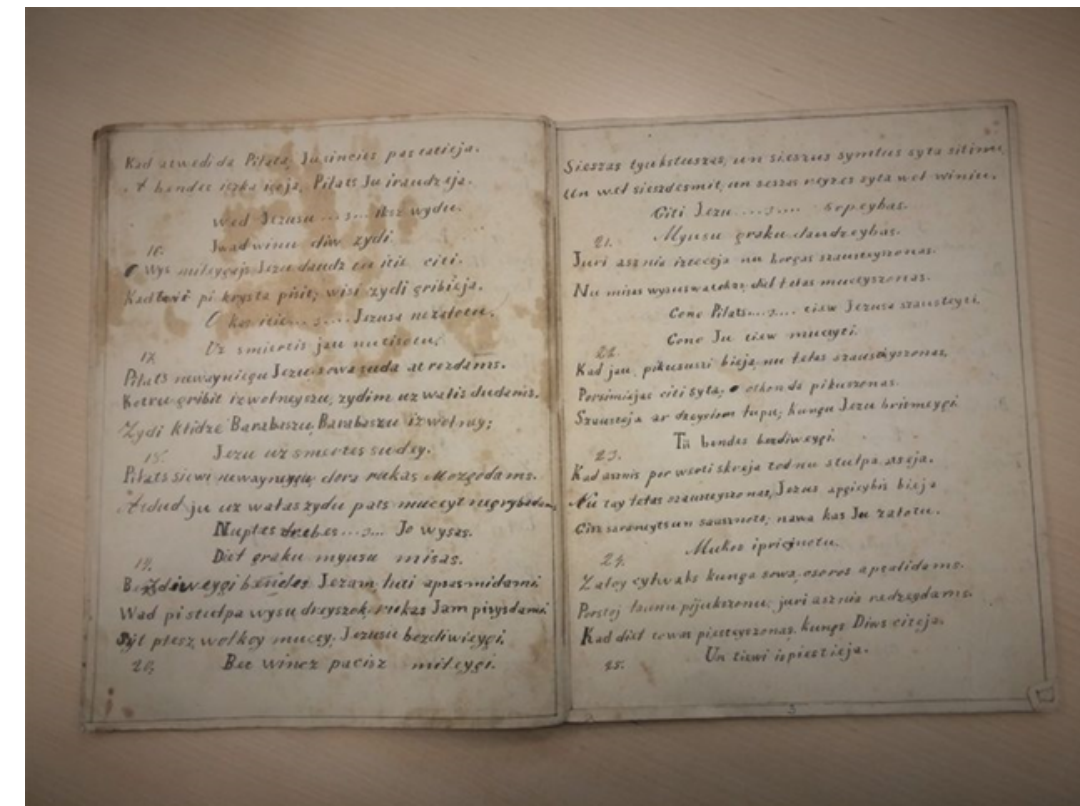 Kad atwedi da Piłata, Juincies pascaticja.
A bendes iszka ioja, Piłats Ju iraudzeja.
Wed Jezusu ....3... iksz wydu.
Jwadwinu diw zydi.
16.
Wys mileygajs Jezu daudz tu itie citi.
Kad tewi pi krysta pisit; wisi zydi gribieja.
O kas itie...3.... Jezusa nezatotu.
Uz smiertis jau nutisotu.
17.
Piłats newayniegu Jezu sowa suda atrozdams.
Kotru gribit izwotneyszu, zydim uz walis dudams.
Zydi klidze Barabaszu, Barabaszu izwolney;
Jezu uz smertes sudey.
18.
Piłats siewi newaynigu dora rukas Mozgodams.
Atdud ju uz walas zydu pats muceyt negrybadams
Nuplas drebes...3... Jo wysas.
Diel graku myusu misas.
19.
Bezdiweygi bendes Jezam luti apsasmidami
Wad pi stułpa wysu dreyszok, rukas Jam pisyidami
Syt plesz, wolkoy mucey, Jezusu bezdiwieygi,
Bet wincz pacisz mileygi.
20.
Sieszas tyukstuszas, un sieszus symtus syta sitimu,
Un wel sieszdesmit, un seszas reyzes syta wel winiu.
Citi Jezu ....3.... torpeybas.
Myusu graku daudzeybas.
21.
Juri asznia iztecoja nu borgas szausteyszonas.
Nu misas wysus watokus, diel tetas muceyszonas.
Ceno Piłats...3.... ciew Jezusa szausteyti,
Ceno Ju ciew muceyti.
22.
Kad jau pikususzi bieja nu tetas szausteyszonas,
Porsimiajas citi syta, otkonda pikuszonas.
Szaustoja ar dzeyslom tupu; kungu Jezu briesmeygi
Tü bendes bezdiweygi.
23.
Kad asznis por wersti skreja tod nu stułpa atseja.
Nu tay tetas szausteyszonas, Jezus apgieybis bieja
Cisz sarameyts un sausznots; nawa kas Ju zatotu.
Mukos ipriecynotu.
24.
Zatoy cylwaks kunga sowa, osoros apsalidams.
Porstoj launu pijukszonu, juri asznia redzegdams.
Kad diel towas piesteyszonas, kungs Diws citeja.
Un tiewi ispiesticja.
25.
3